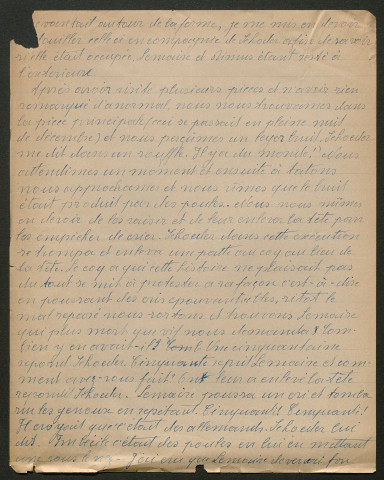 autour de la ferme, je me mis en devoir
de fouiller celle ci en compagnie de Schoder afin de savoir
si elle était occupée, Lemaire et étant resté à
l'extérieur.
Après avoir visité plusieurs pièces et n'avoir rien
remarqué d'anormal, nous nous trouvâmes dans
la pièce principale (ceci se passait en pleine nuit
de décembre) et nous perçûmes un léger bruit. Schoder
me dit dans un souffle. Il y a du monde!! Nous
attendîmes un moment et ensuite à tâtons
nous approchâmes et nous vîmes que le bruit
était produit par des poules. Nous nous mîmes
en devoir de les saisir et de leur enlever la tête pour
les empêcher de crier. Schoder dans cette exécution
se trompa et enleva une patte au coq au lieu de
la tête. Le coq a qui cette histoire ne plaisait pas
du tout se mit à protester a sa façon c'est-à-dire
en poussant des cris épouvantables, vite le
mal réparé nous sortons et trouvons Lemaire
qui plus mort que vif nous demanda! Com-
bien y en avait-il? Une cinquantaine
repond Schoder. Cinquante reprit Lemaire et com-
ment avez-vous fait? On leur a enlevé la tête
répondit Schoder. Lemaire poussa un cri et tomba
sur les genoux en répétant. Cinquante! Cinquante!
Il croyait que c'était des allemands. Schoder lui
dit. Imbécile c'était des poules en lui en mettant
une sous le nez. J'ai cru que Lemaire devenait fou